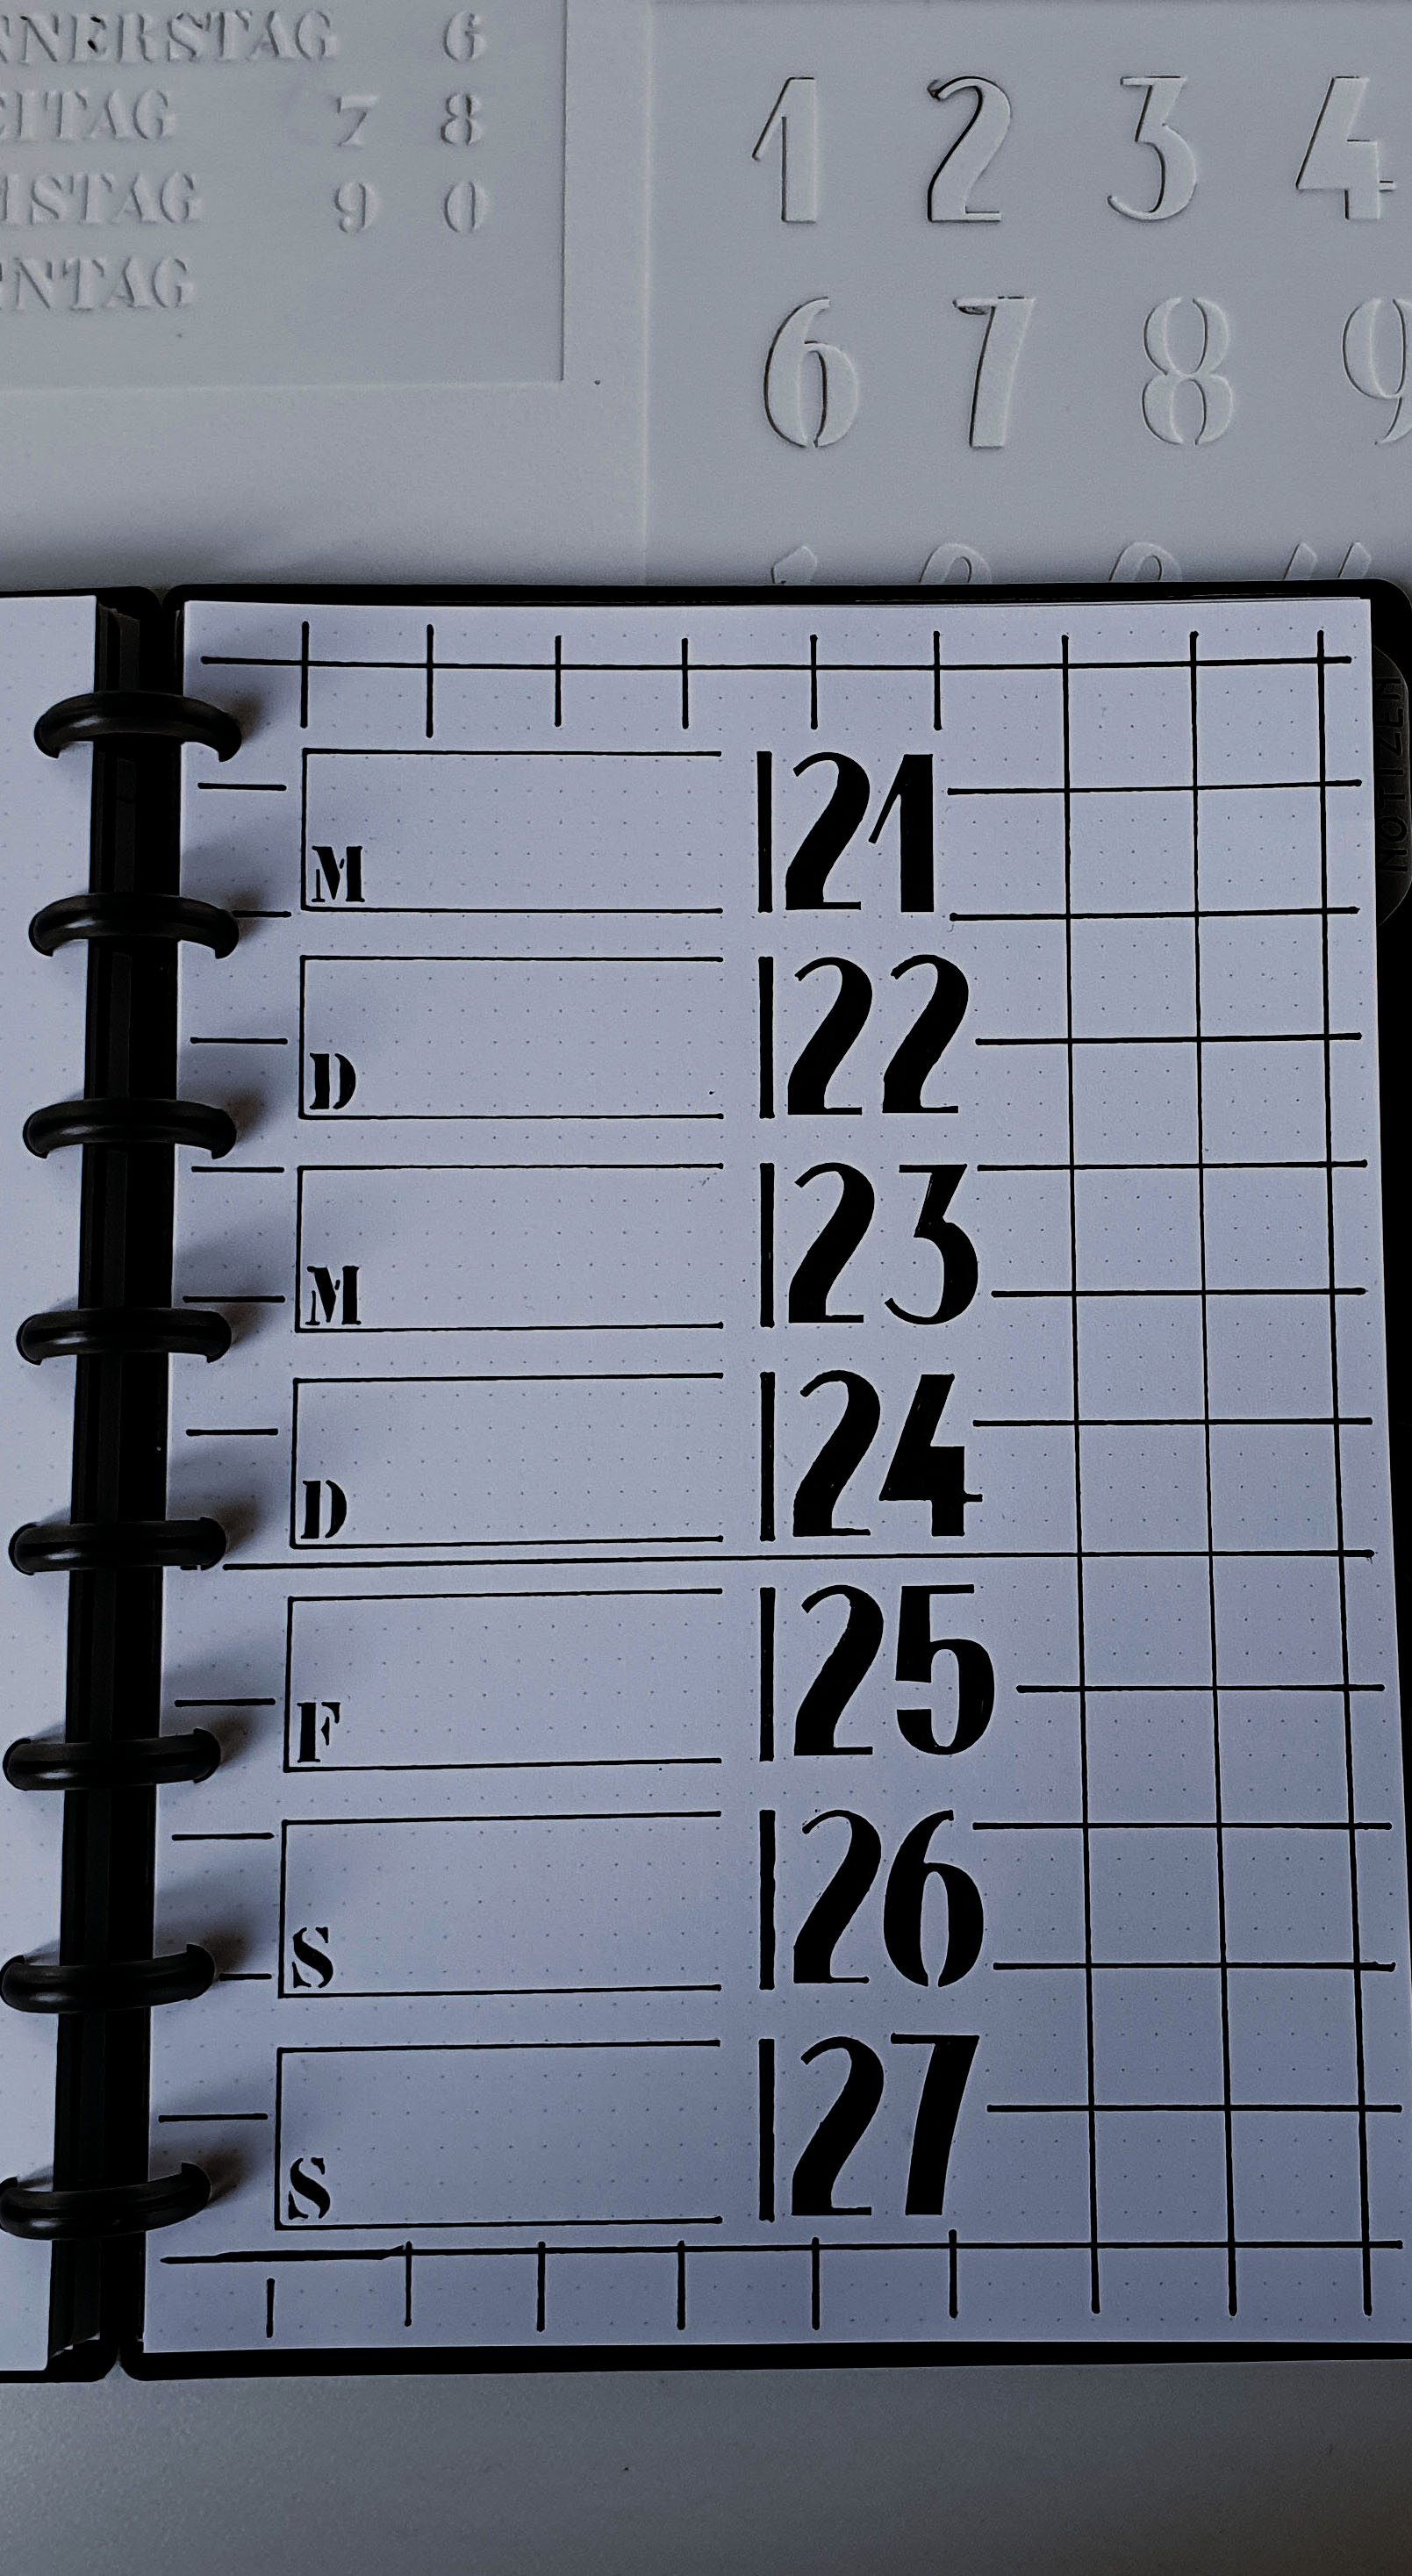 NNERSTAG 6
EITAG 7 8
MSTAG 9 0
NNTAG
1 2 3 4
6 7 8 9
NOTIZEN
M 21
D 22
M 23
D 24
F 25
S 26
S 27